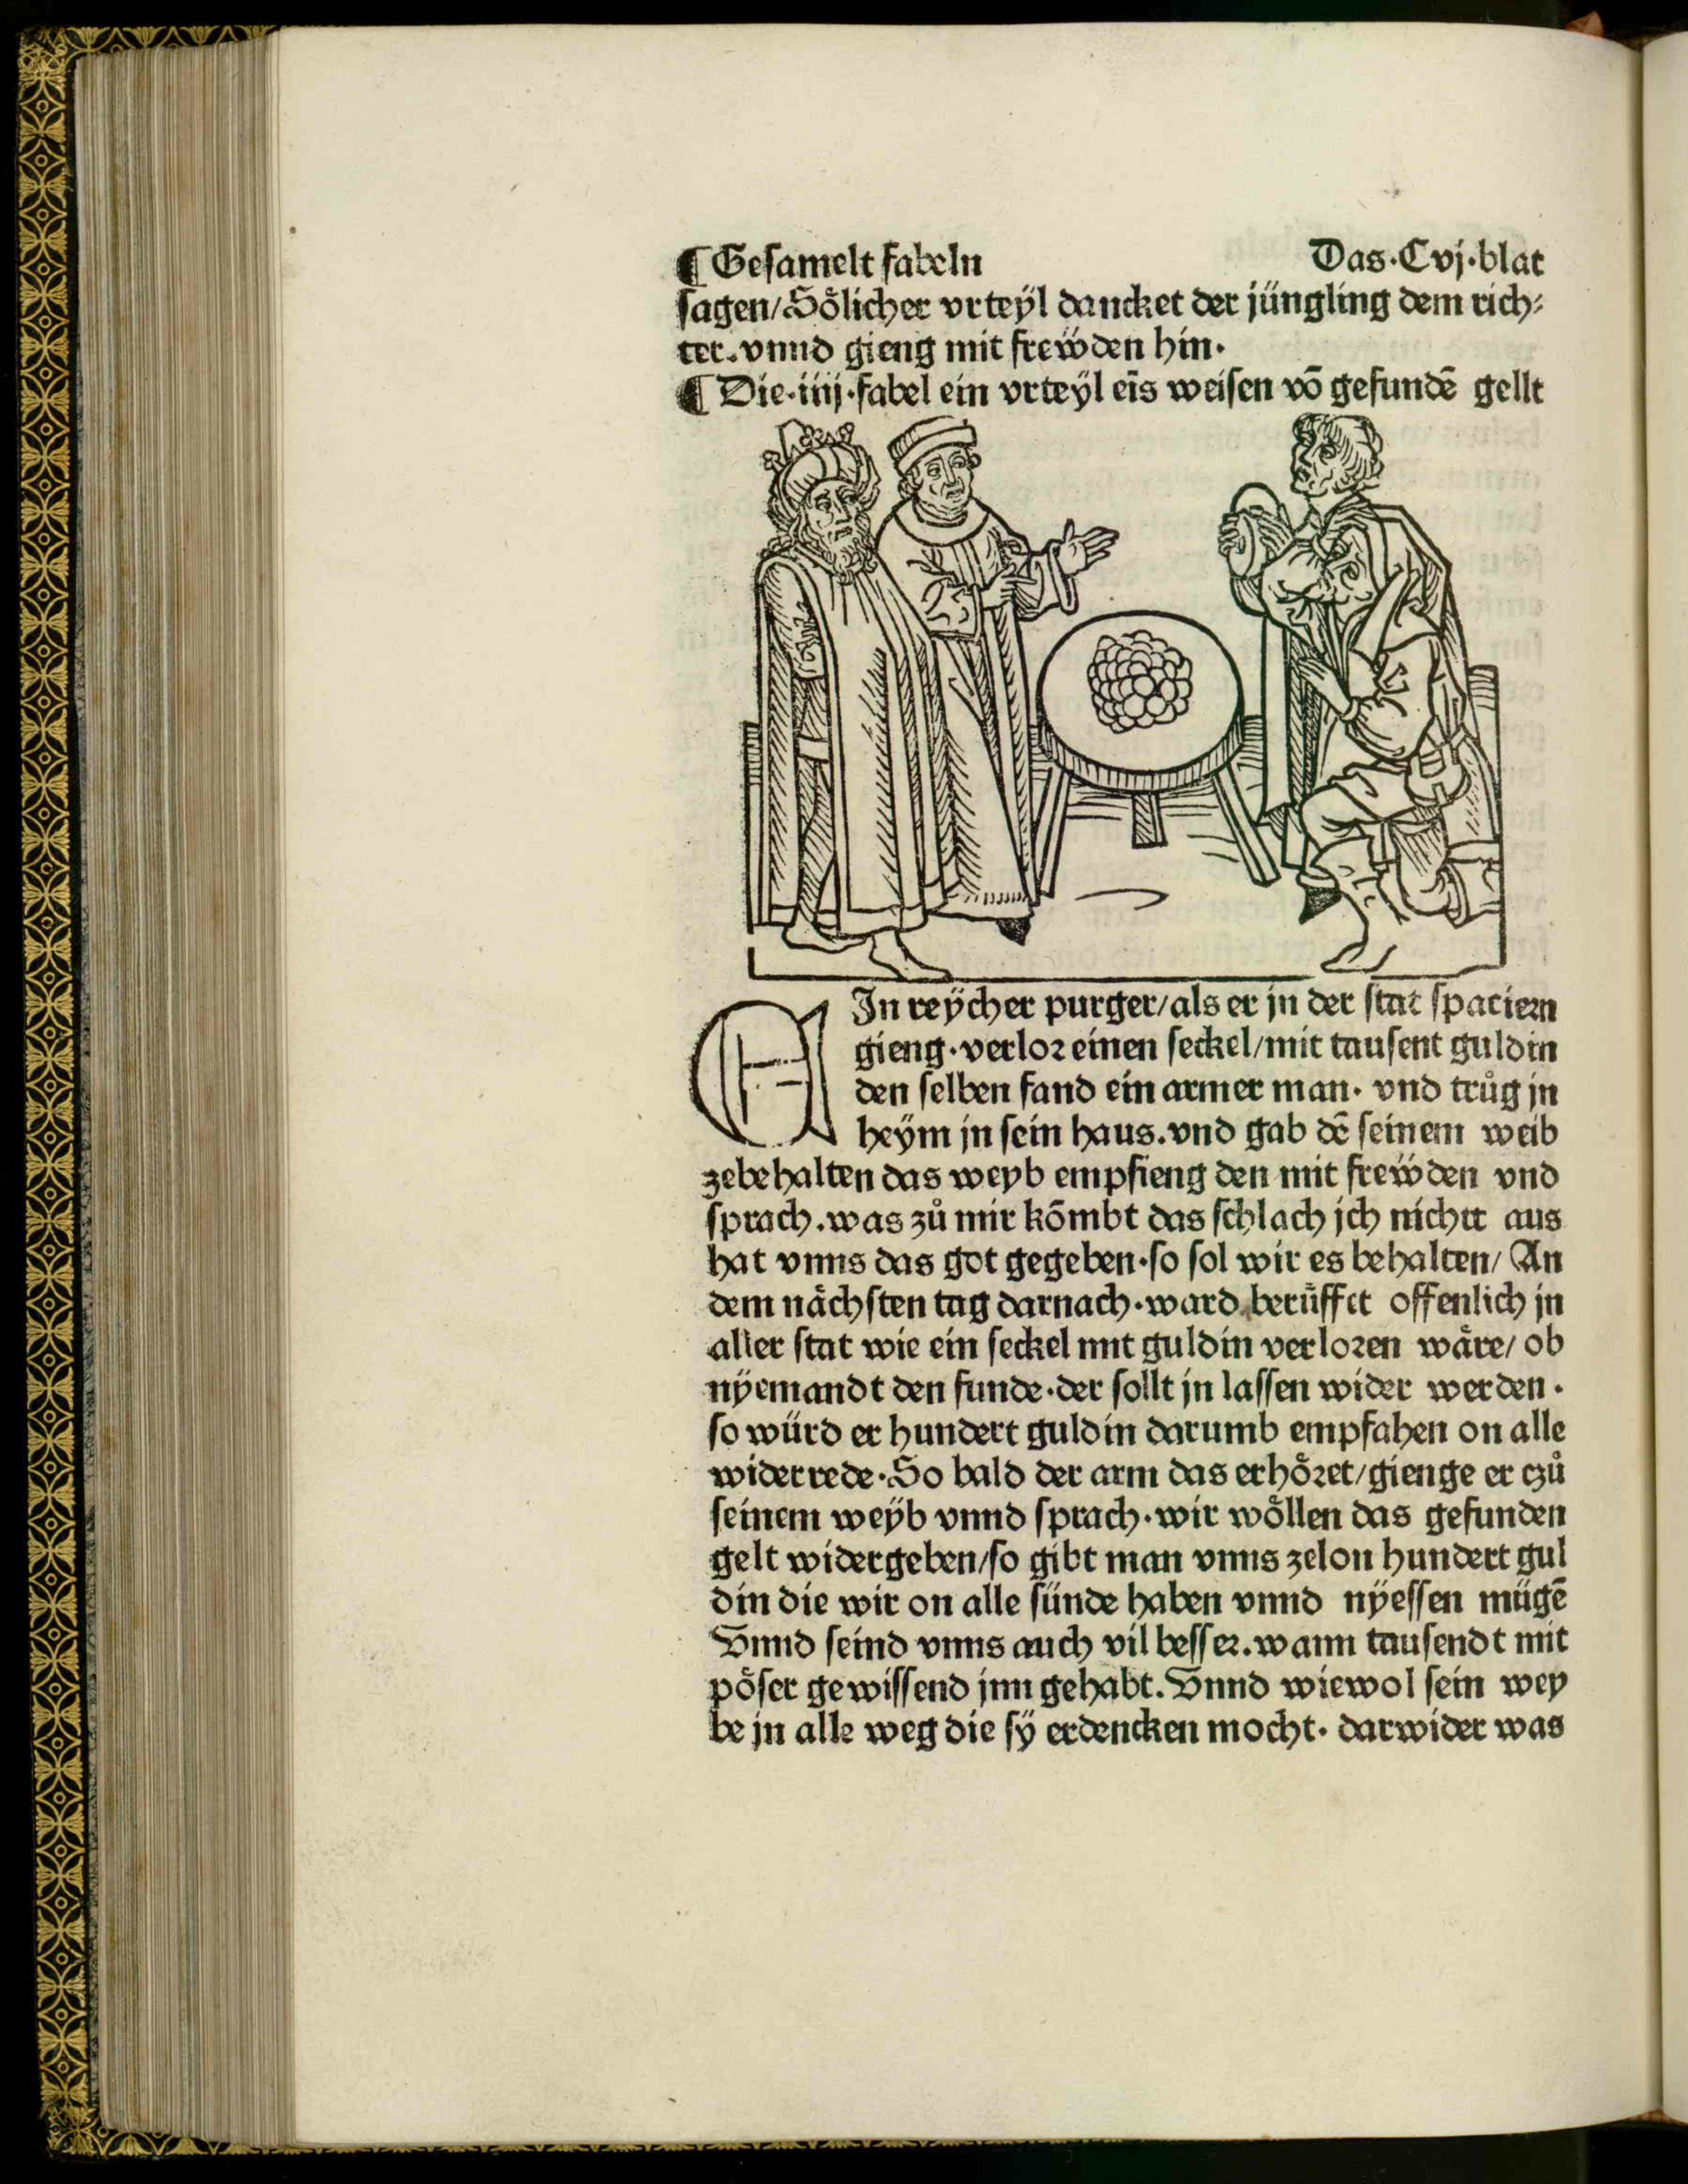 ¶ Gesamelt fabeln Das·Cvj·blat
sagen/Sölicher vrteÿl dancket der jüngling dem rich⸗
ter.vnnd gieng mit frewden hin.
¶ Die·iiij·fabel ein vrteÿl eīs weisen vō gefundē gellt
EIn reÿcher purger/als er jn der stat spaciern
gieng·verlor einen seckel/mit tausent guldin
den selben fand ein armer man· vnd trůg jn
heÿm jn sein haus.vnd gab dē seinem weib
zebehalten das weyb empfieng den mit frewden vnd
sprach.was zů mir kōmbt das schlach jch nichtt aus
hat vnns das got gegeben·so sol wir es behalten/ An
dem nächsten tag darnach·ward berüffet offenlich jn
aller stat wie ein seckel mit guldin verloren wäre/ ob
nÿemandt den funde·der sollt jn lassen wider werden·
so würd er hundert guldin darumb empfahen on alle
widerrede·So bald der arm das erhöret/gienge er czů
seinem weÿb vnnd sprach·wir wöllen das gefunden
gelt widergeben/so gibt man vnns zelon hundert gul
din die wir on alle sünde haben vnnd nÿessen mügē
Vnnd seind vnns auch vil besser.wann tausendt mit
pöser gewissend jnn gehabt.Vnnd wiewol sein wey
be jn alle weg die sÿ erdencken mocht· darwider was